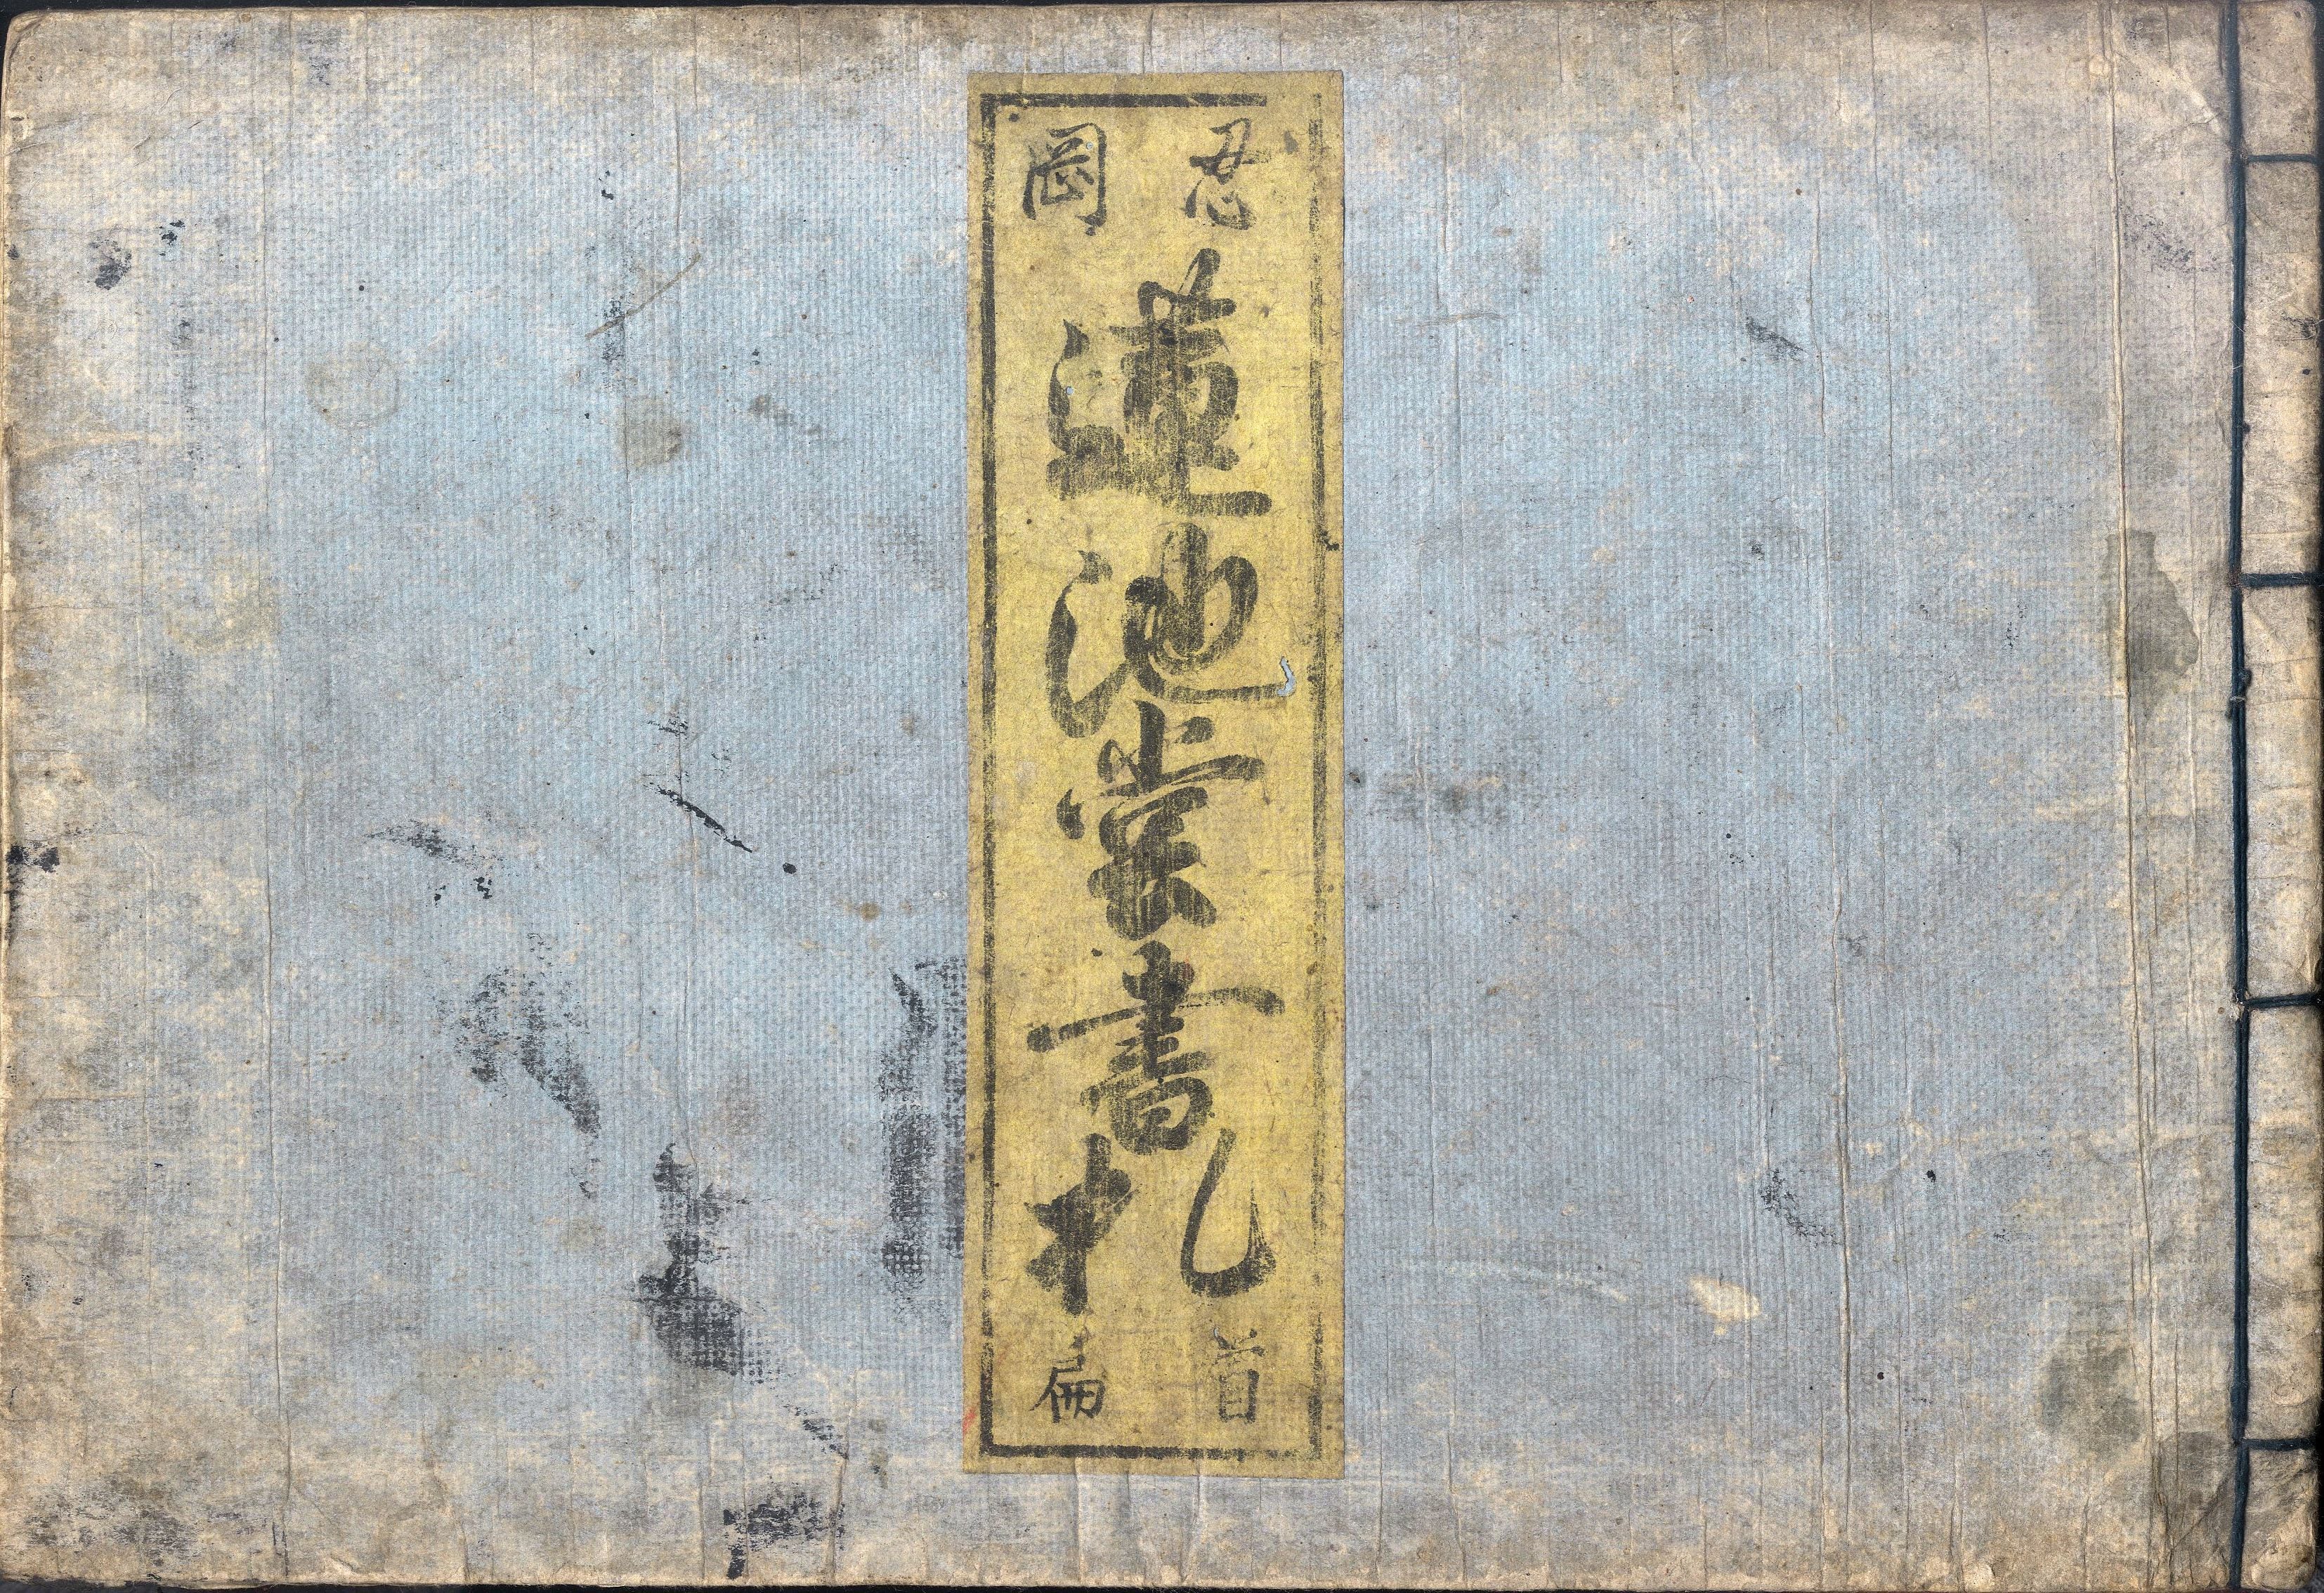 忍岡
蓮池堂書札
首篇